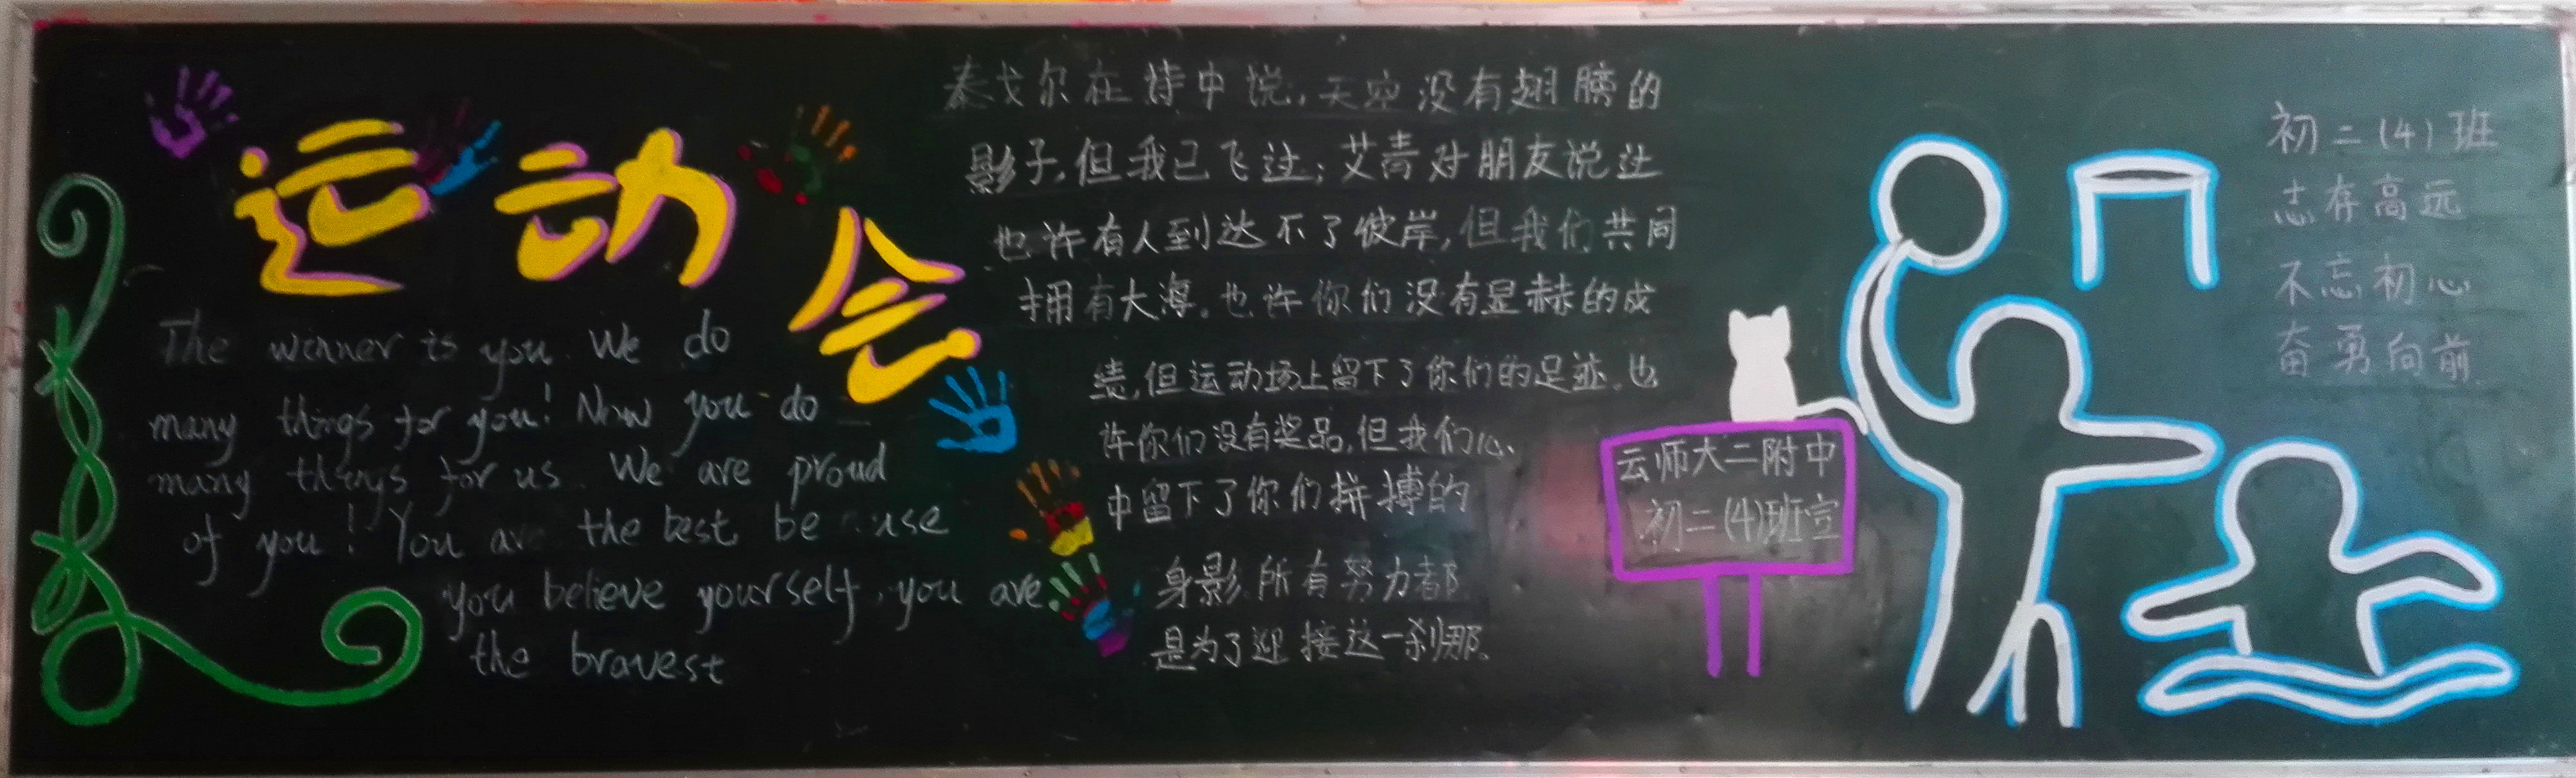 运动会
The winner is you. We do
many things for you! Now you do
many things for us. We are proud
of you! You are the best be use
you believe yourself, you are
the bravest
泰戈尔在诗中说,天空没有翅膀的
影子,但我已飞过;艾青对朋友说过
也许有人到达不了彼岸,但我们共同
拥有大海。也许你们没有显赫的成
绩,但运动场上留下了你们的足迹。也
许你们没有奖品,但我们心、
中留下了你们拼搏的
身影.所有努力都
是为了迎接这一刹那。
云师大二附中
初二(4)班宣
初二(4)班
志存高远
不忘初心
奋勇向前